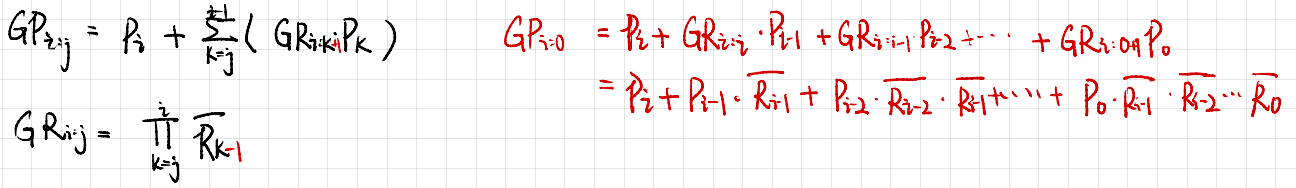 GP_{i:j} = P_i + \sum_{k=j}^{i-1} ( GR_{i:k+1} P_k )
GR_{i:j} = \prod_{k=j}^{i} \overline{R_{k-1}}
GP_{i:0} = P_i + GR_{i:i} · P_{i-1} + GR_{i:i-1} P_{i-2} + ⋯ + GR_{i:0+1} P_0
= P_i + P_{i-1} · \overline{R_{i-1}} + P_{i-2} · \overline{R_{i-2}} · \overline{R_{i-1}} + ⋯ + P_0 · \overline{R_{i-1}} · \overline{R_{i-2}} ⋯ \overline{R_0}